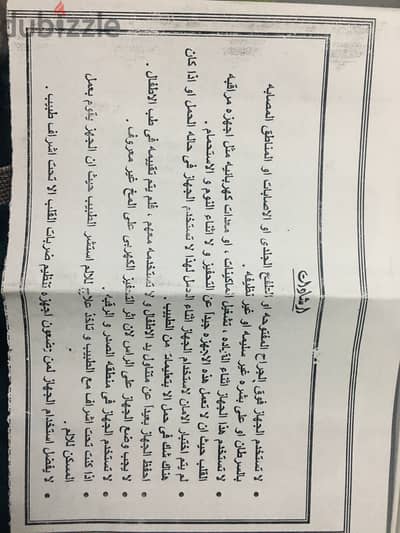 dubizzle
إرشادات
• لا تستخدم الجهاز فوق الجراح المفتوحه او الطفح الجلدى او الاصابات او المناطق المصابه
بالسرطان او على بشره غير سليمه او غير نظيفه.
• لا تستخدم هذا الجهاز اثناء القياده ، تشغيل الماكينات ، او معدات كهربائيه مثل اجهزه مراقبه
القلب حيث ان لا تعمل هذه الاجهزه جيدا عن التحفيز و لا اثناء النوم و الاستحمام .
• لم يتم اختبار الامان لاستخدام الجهاز اثناء الحمل لهذا لا تستخدم الجهاز فى حاله الحمل او اذا كان
هناك شك فى حمل الا بتعليمات من الطبيب .
• احفظ الجهاز بعيدا عن متناول يد الاطفال و لا تستخدمه معهم ، فلم يتم تقييمه فى طب الاطفال .
• لا يجب وضع الجهاز على الراس لان اثر التحفيز الكهربى على المخ غير معروف .
• لا تستخدم الجهاز فى منطقه الصدر و الرقبه .
• اذا كنت تحت اشراف مع الطبيب و تاخذ علاج للالم استشر الطبيب حيث ان الجهاز يقوم بعمل
المسكن للالم .
• لا يفضل استخدام الجهاز لمن يضعون اجهزه تنظيم ضربات القلب الا تحت اشراف طبيب .